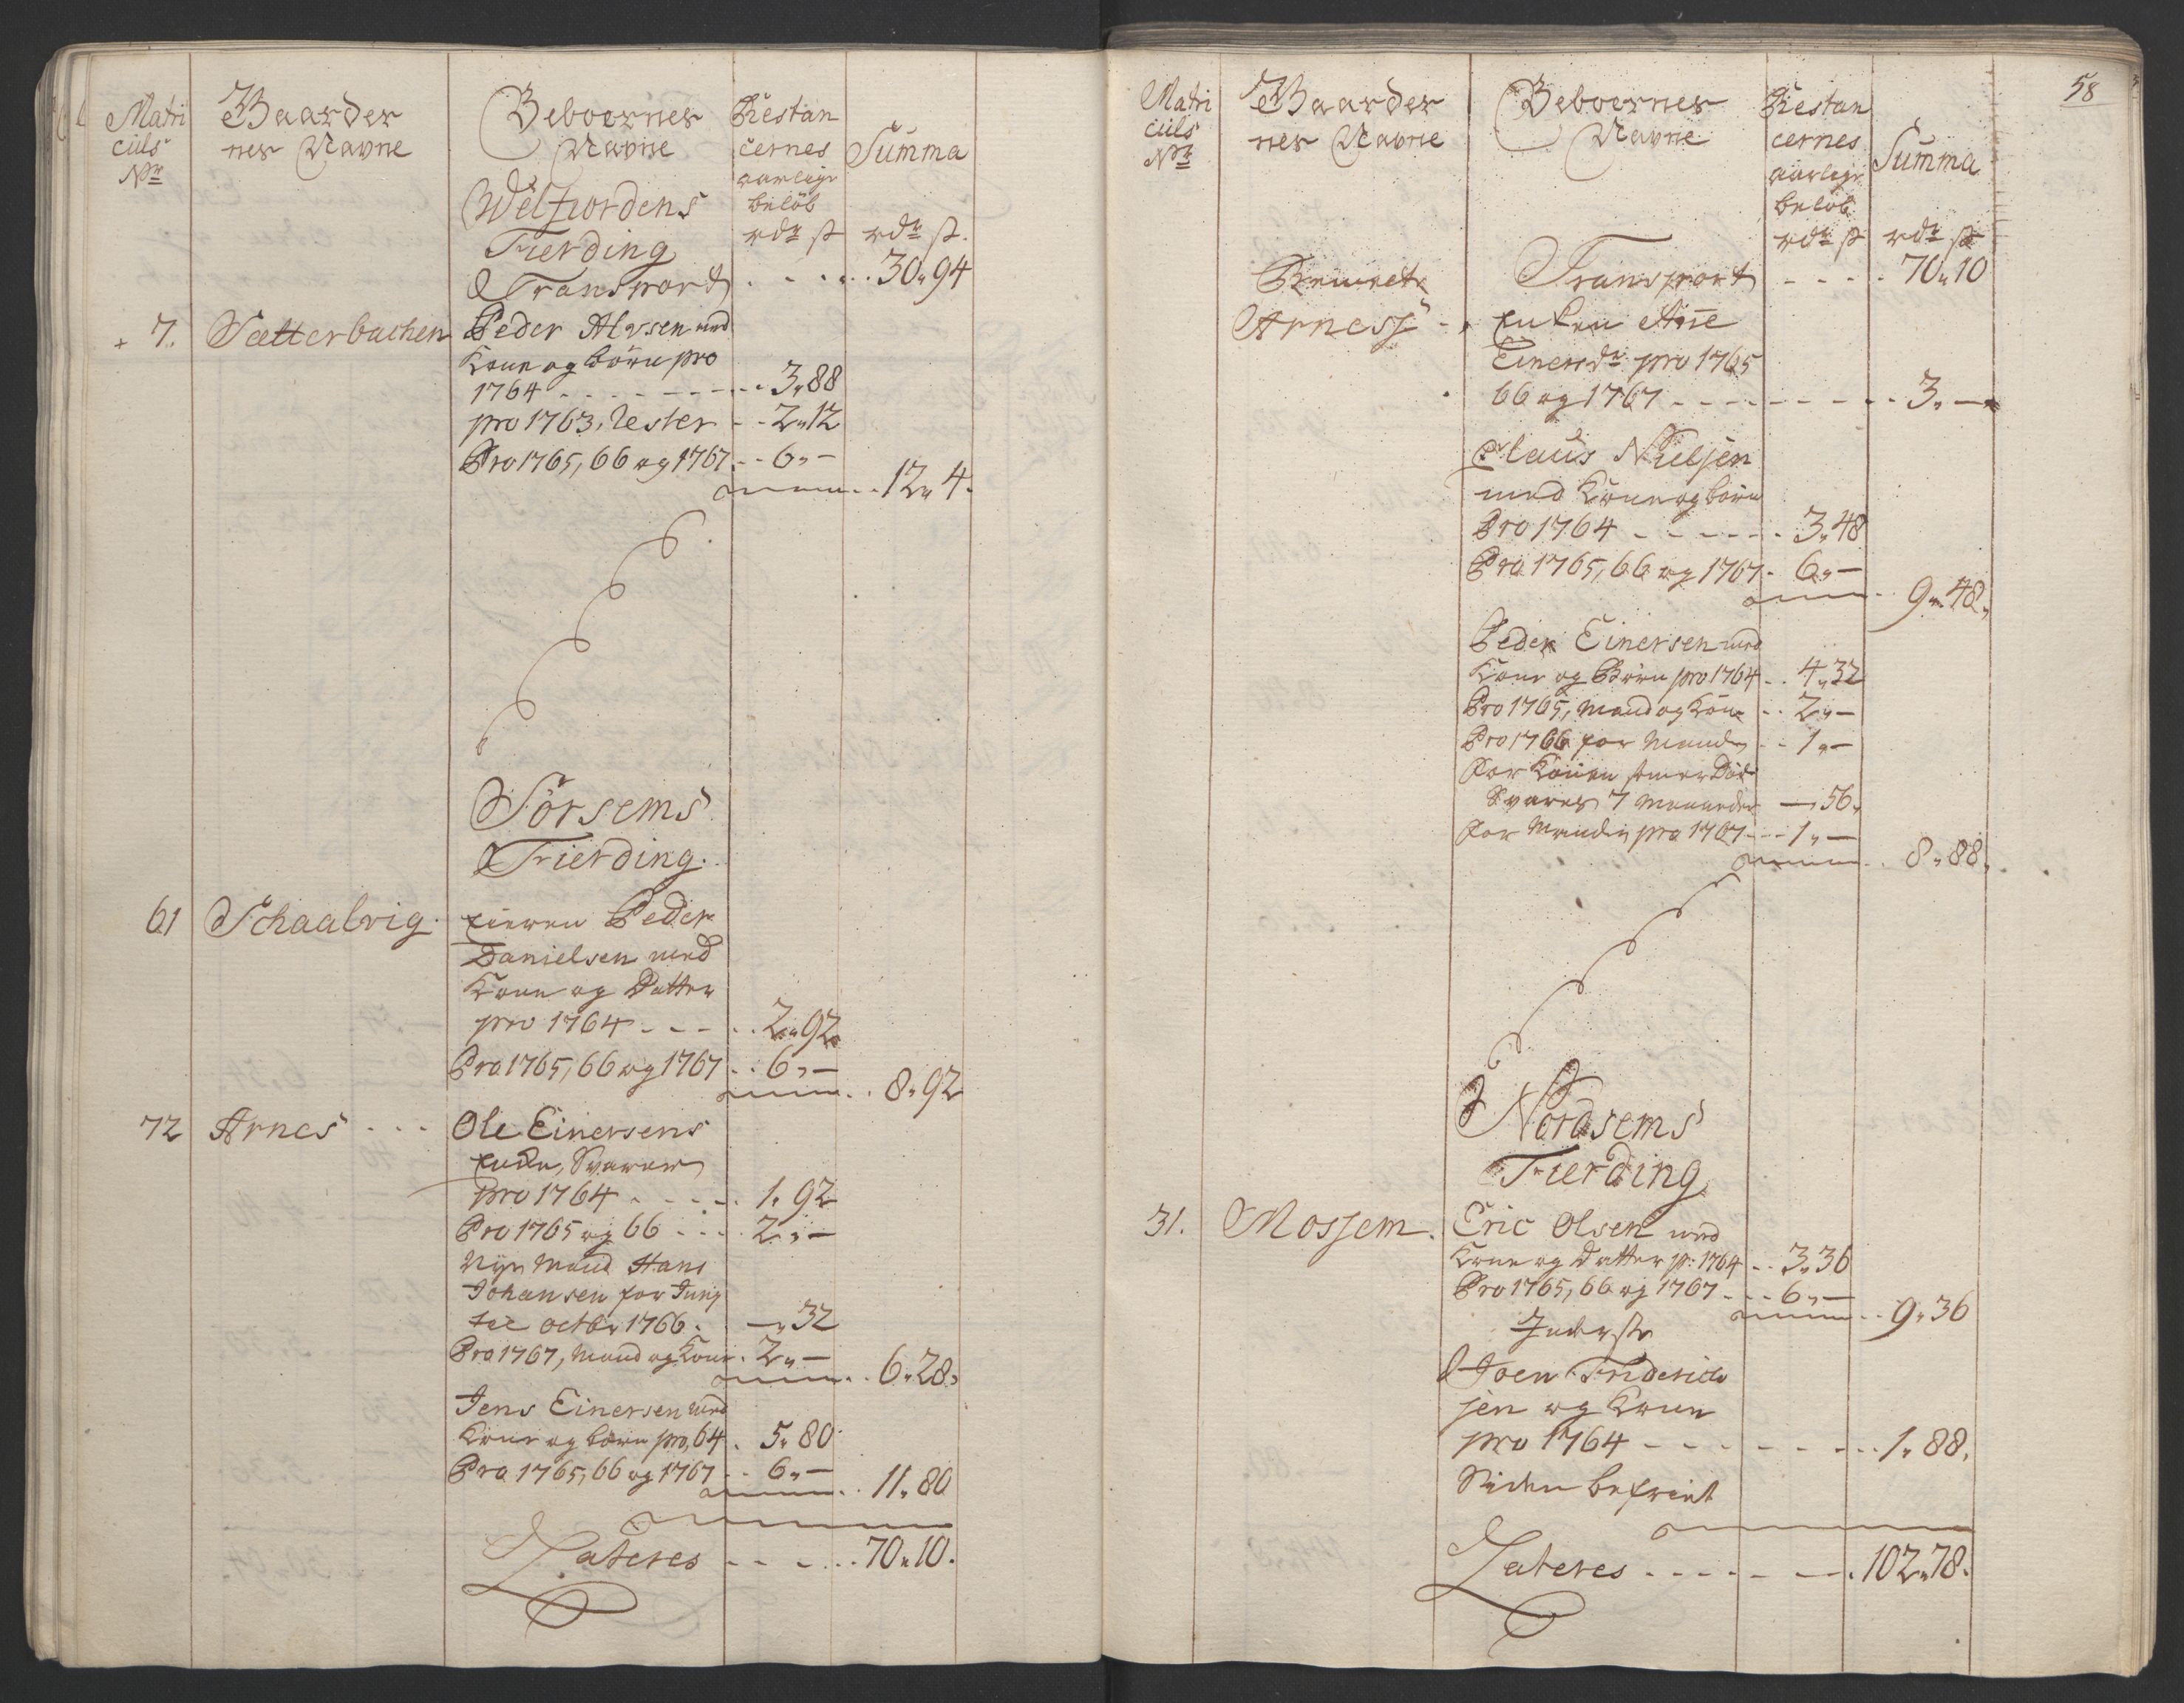 Matri
culs
Nr
Gaarder
nes Navne
Beboernes
Navne
Restan
cernes
aarlige
beløb
rdr ß
Summa
rdr ß.
Welfiordens
Fierding
Transport . . . . . 30"94
7. Sætterbachen Peder Alvsen med
Kone og børn pro
1764 - - - - - - - 3"88
pro 1763, Rester - - 2"12
Pro 1765, 66 og 1767 - - 6"-
12" 4.
Sörsems
Fierding.
61 Schaalvig. Peder
Danielsen med
Kone og Datter
pro 1764 - - - . . 2"92
Pro 1765, 66 og 1767 . . 6"-
8"92
72 Arnes - - - Ole Einersens
Enke, Svarer
pro 1764 - - - - 1"92
Pro 1765 og 66 - - - - 2"-
Nye Mand Hans
Johansen for Juny
til octbr 1766. -"32
Pro 1767, Mand og Kone. 2"-
6"28"
Jens Einersen med
Kone og børn pro, 64 . 5"80
Pro 1765, 66 og 1767 - - 6"-
11"80
Lateres - - - . . . 70"10.
58
Matri
culs
Nr
Gaarder
nes Navne
Beboernes
Navne
Restan
cernes
aarlige
beløb
rdr ß
Summa
rdr ß
Transport - - - - 70"10
Arness - . Enken Anne
Einersdr pro 1765
66 og 1767 - - - - - - - - 3"-
Claus Nielsen
med Kone og børn
Pro 1764 - - - - - - 3"48
Pro 1765, 66 og 1767 - 6"-
9"48"
Peder Einersen med
Kone og Börn pro 1764 . . 4"32
Pro 1765, Mand og Kone . . 2"-
Pro 1766 for Manden - - 1"-
For Konen som er Död
Svares 7 Maaneder -"56"
For Manden pro 1767 - - - 1"-
8"88"
Nordsems
Fierding
31. Mossem. Eric Olsen med
Kone og Datter p: 1764 . . 3"36
Pro 1765, 66 og 1767 - - - 6"-
9"36
Inderste
Joen Friderich
sen og Kone
pro 1764 - - - - - - - . . 1"88"
Siden befriet
Lateres - - - - - - - . 102"78.